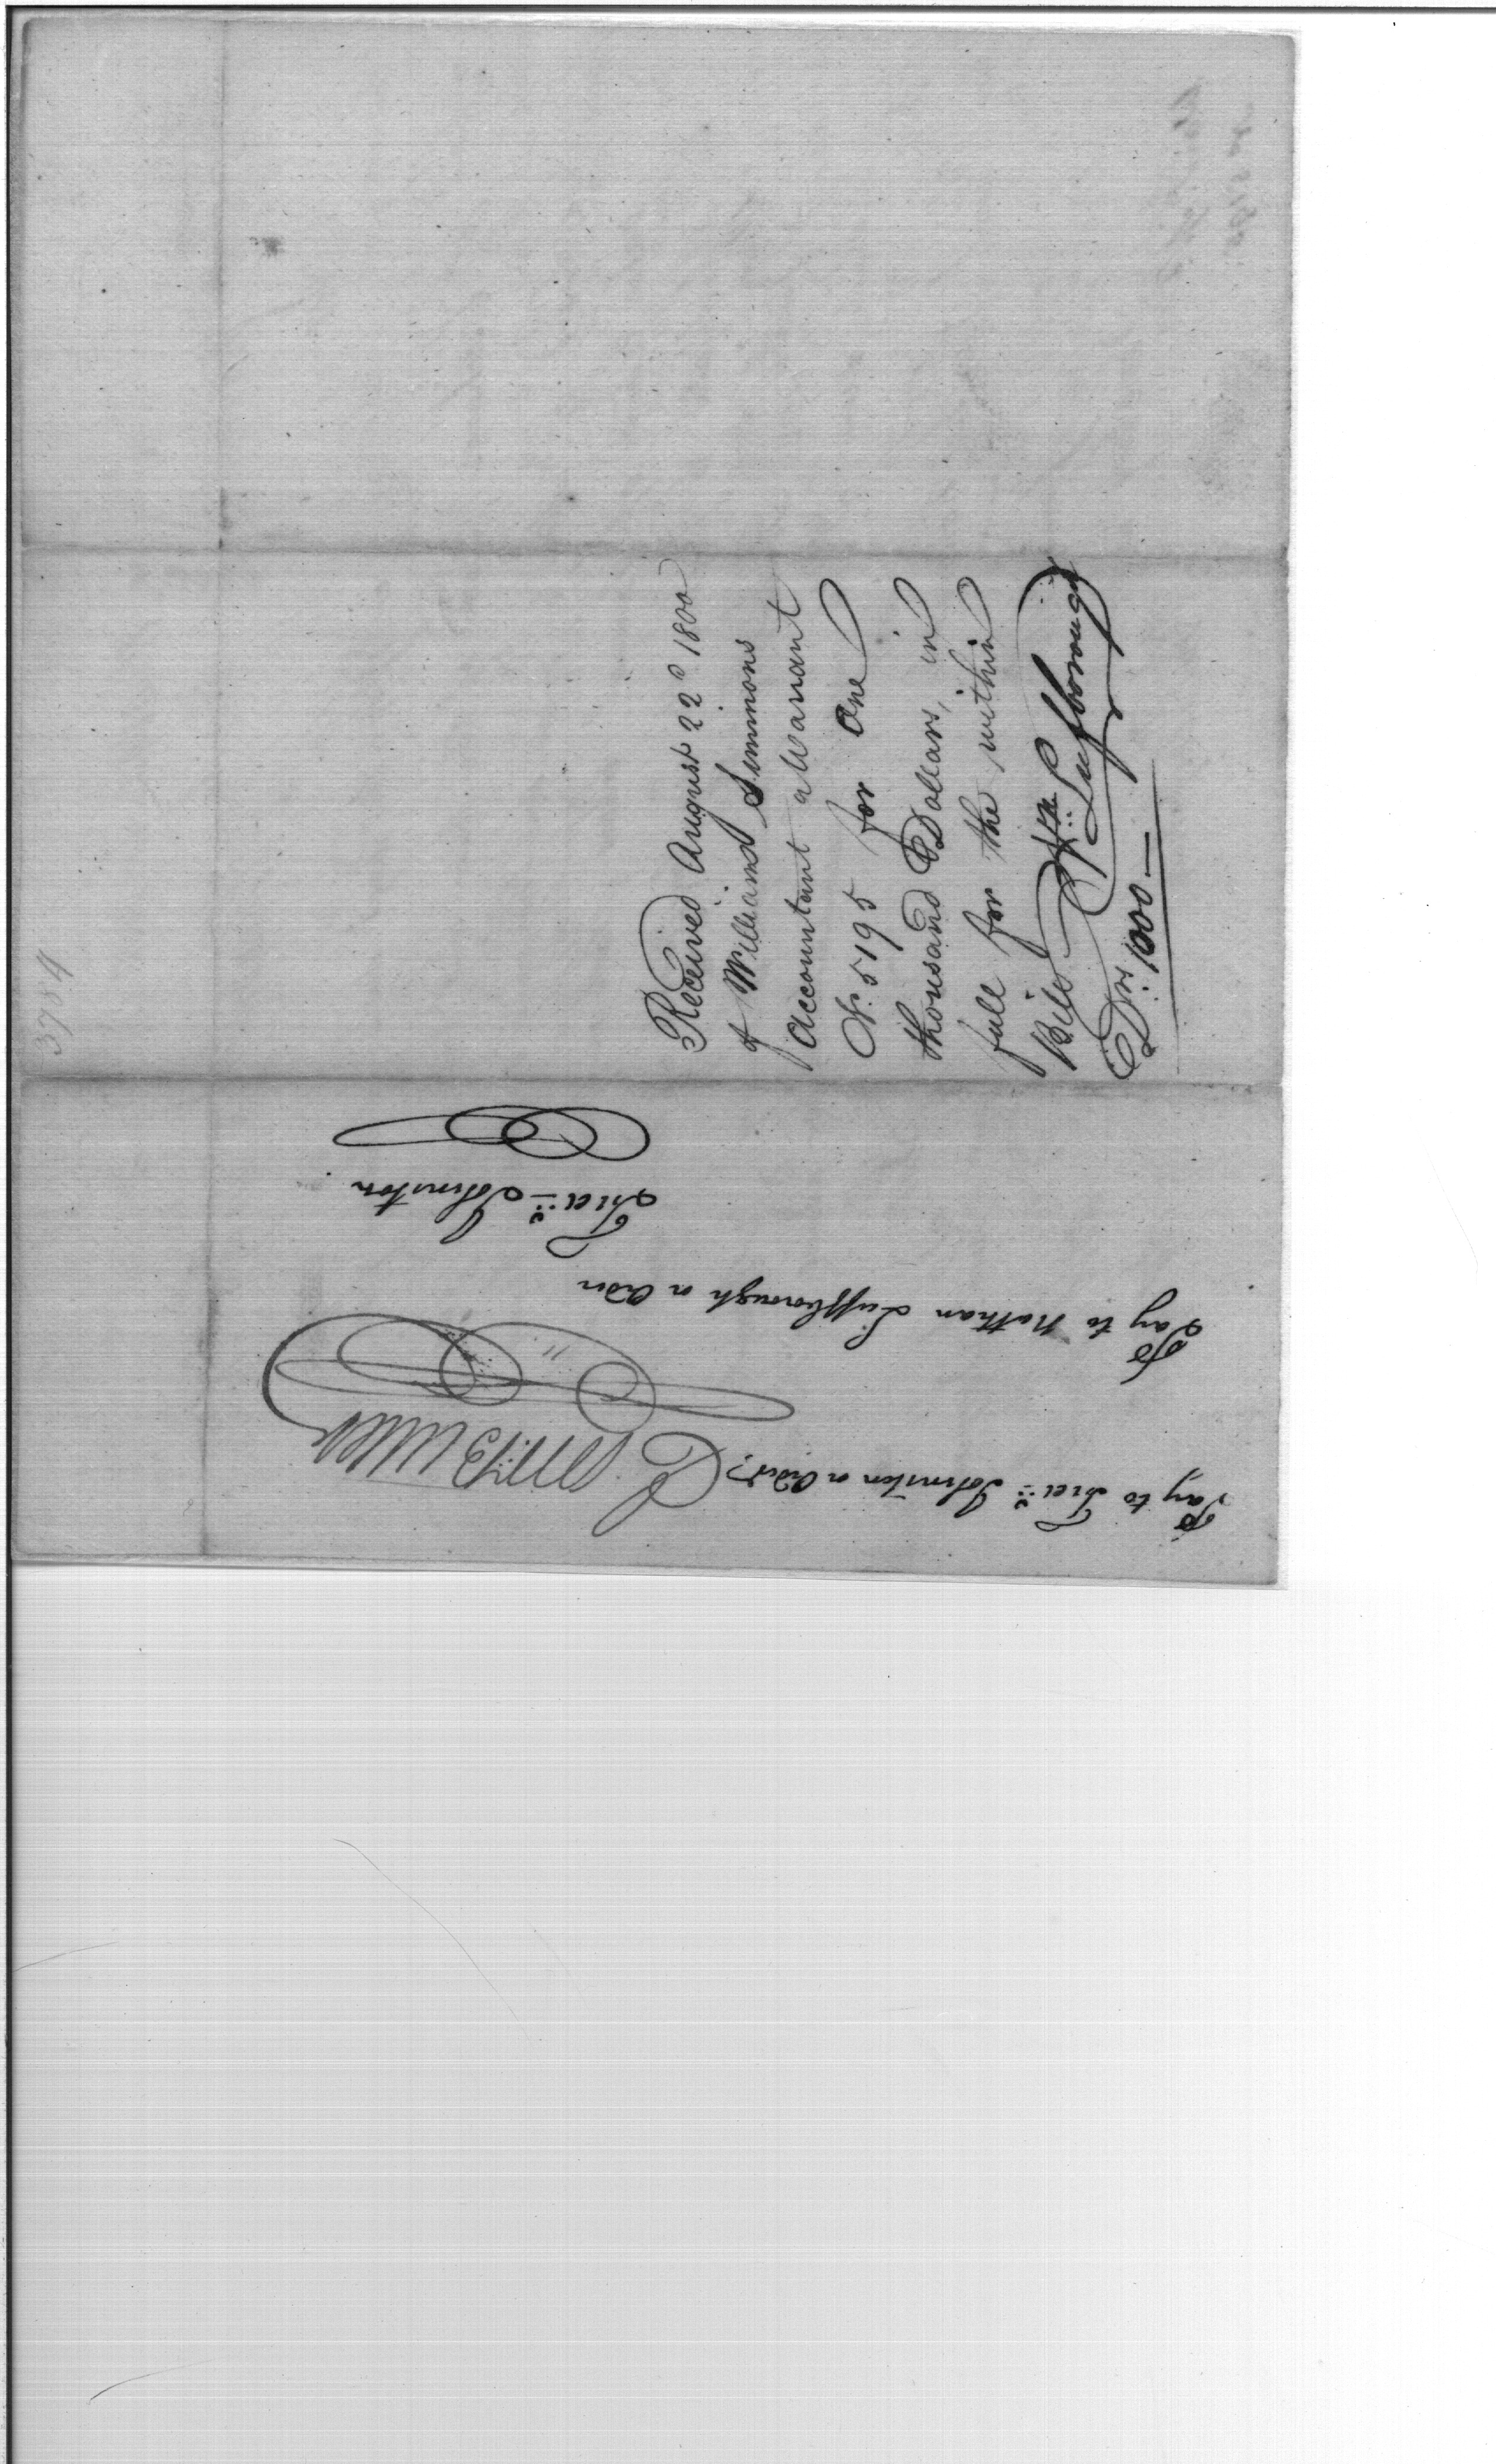 Pay to Fred: Johnston or Order,
Pay to Nathan Luffborough or Order
Fred: Johnston
Received August 22d 1800
of William Simmons
Accountant a Warrant
No. 5195 for One
thousand Dollars, in
full for the within
Bill
Nn: Luffborough
Drs: 1000 —
3784